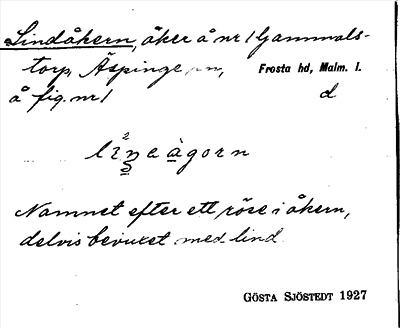 Lindåkern, åker å nr 1 Gammals-
torp, Äspinge sn, Frosta hd, Malm. l.
å fig. nr 1 d
Namnet efter ett röse i åkern,
delvis bevuxet med lind
GÖSTA SJÖSTEDT 1927